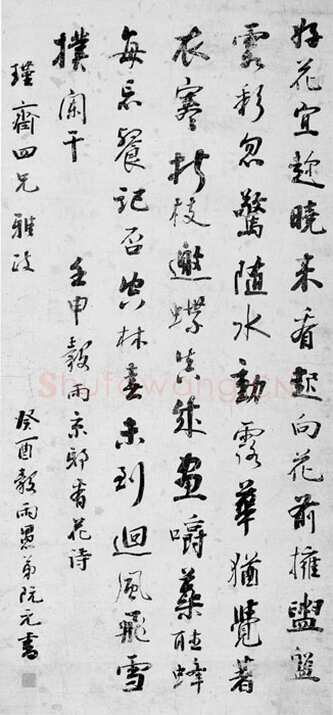 好花宜趂曉來看起向花前擁盥盤
雲彩忽驚隨水動露華猶覺著
衣寒折枝邀蝶真成畫嚼蘂蜂
每忘餐記否空林春未到迴風飛雪
撲闌干 壬申穀雨京邸看花詩
瑾齋四兄雅政 癸酉穀雨愚弟阮元書
Shufawang.CN